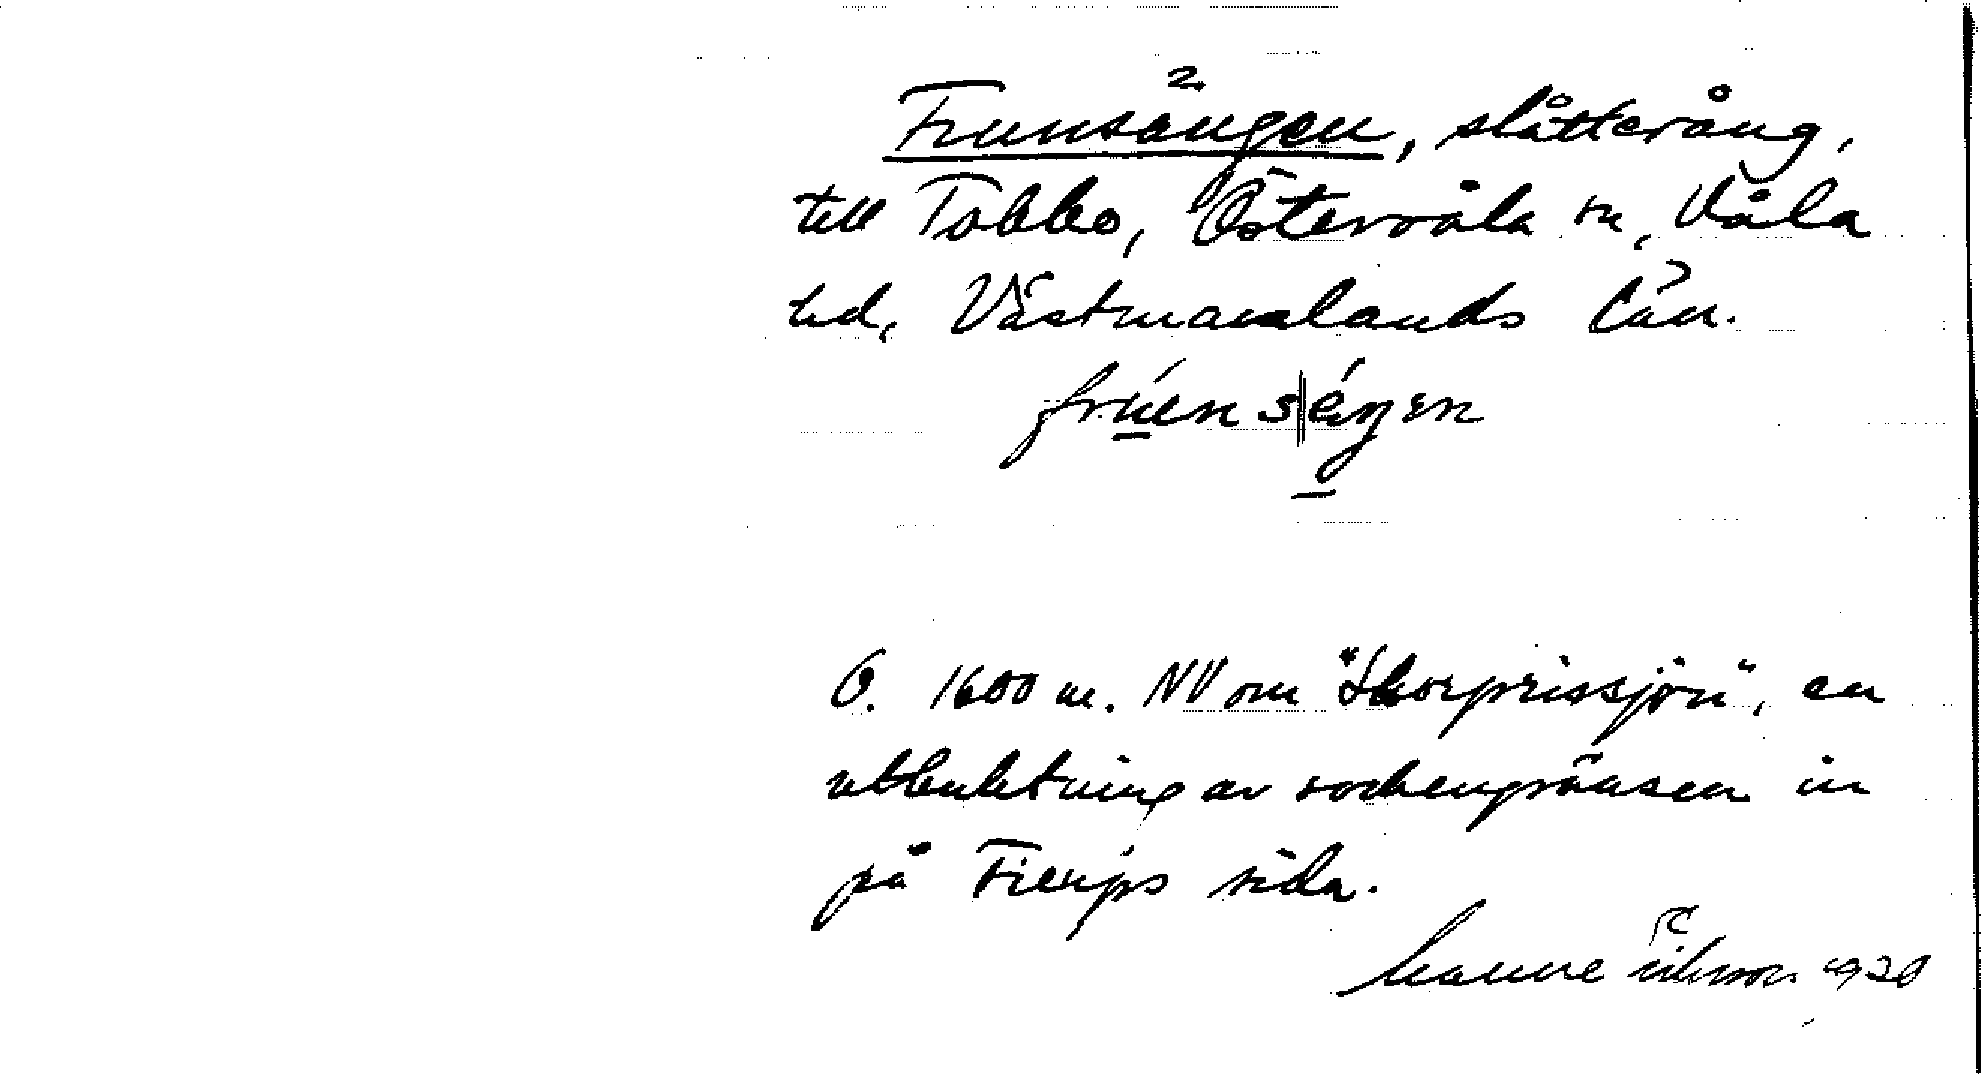 2.
Frunsängen, slåtteräng,
till Tobbo, Östervåla sn, Våla
hd, Västmanlands län.
frúensléŋen
C. 1600 m. NV om "Skorprissjön", en
utbuktning av sockengränsen in
på s sida.
1920